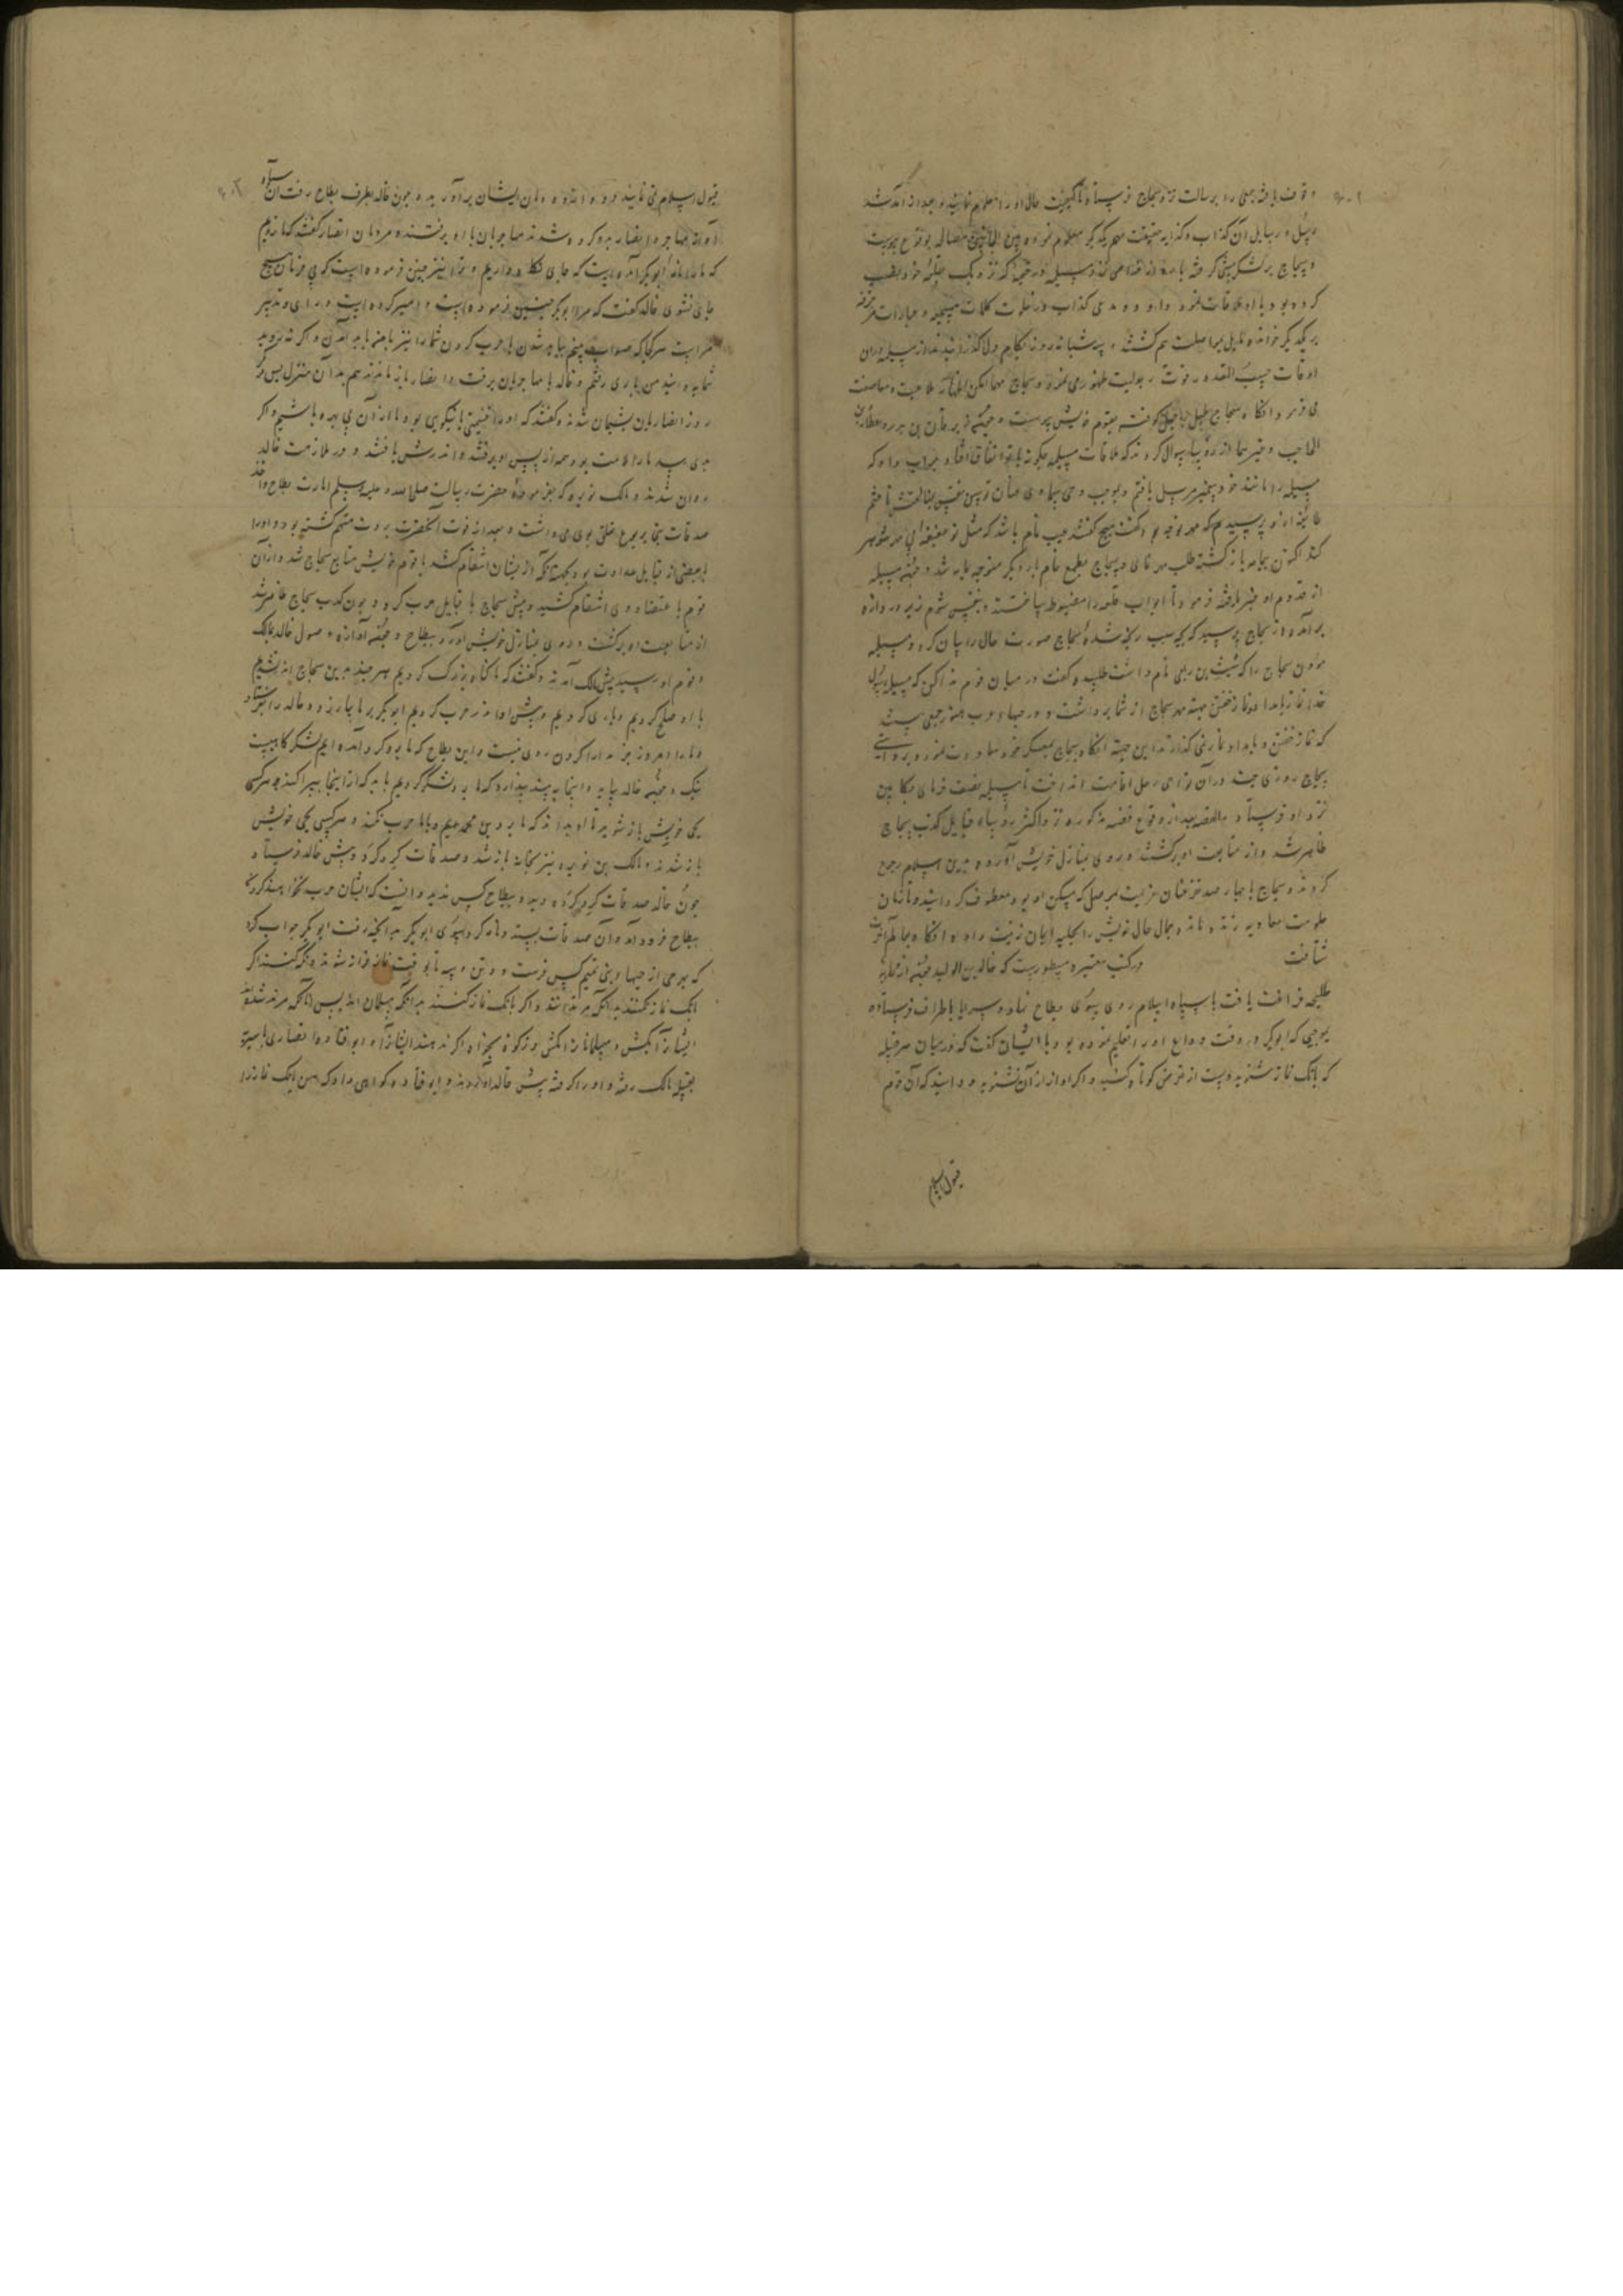 وقوف یافته جمعی را برسالت نزد سجاح فرستاد تا کیفیت حال او را معلوم نمایند و بعد از آمد شد
رسل و رسایل آن کذاب و کذابه حقیقت مهم یکدیگر معلوم نموده بین الجانبین مصالحه بوقوع پیوست
و سجاح بر لشکر پیشی گرفته با
کرده بود با او ملاقات نمود و آن دو مدعی کذاب در خلوت کلمات مسجعه و عبارات مزخرفه
بر یکدیگر خوانده مایل بمواصلت هم گشتند و سه شبانه روز بکام دل گذرانیدند و از مسیلمه در آن
اوقات حسب المقدور قوت رجولیت ظهور می نمود و سجاح مهما امکن
می فرمود و انگاه سجاح طبل رحیل کوفته بقوم خویش پیوست و چون زبرقان بن بدر و عطارد بن
الحاجب و غیرهما از رؤسا سوال کردند که ملاقات مسیلمه چگونه با تو اتفاق افتاد جواب داد که
مسیلمه را مانند خود پیغمبر مرسل یافتم و بموجب وحی سماوی
طایفه ازو پرسیدند که مهر تو چه بود گفت هیچ گفتند عیب تمام باشد که مثل تو عفیفه بی مهر شوهر
کند اکنون بیمامه بازگشته طلب مهر نمای و سجاح بطمع تمام بار دیگر متوجه یمامه شد و چون مسیلمه
از قدوم او خبر یافته فرمود تا ابواب قلعه را مضبوط ساختند و بنفس شوم زبر دروازه
برآمد و از سجاح پرسید که بچه سبب رنجه شده سجاح صورت حال را بیان کرد و مسیلمه
مؤذن سجاح را که شبث بن ربعی نام داشت طلبیده گفت در میان قوم ندا کن که مسیلمه رسول
خدا نماز بامداد و نماز خفتن بجهة مهر سجاح از شما برداشت و در میان عرب هنوز جمعی هستند
که نماز خفتن و بامداد نمی گذارند باین جهة انگاه سجاح بمعسکر خود معاودت نمود و بروایتی
سجاح روزی چند در آن نواحی رحل اقامت انداخت تا مسیلمه نصف خرمای
نزد او فرستاد و بالقصه بعد از وقوع قضیه مذکوره نزد اکثر رؤساء قبایل کذب سجاح
ظاهر شد و از متابعت او برگشتند و روی بمنازل خویش آورده بدین اسلام رجوع
کردند و سجاح با چهار صد نفر عنان عزیمت بموصل که مسکن او بود معطوف گردانید و تا زمان
حکومت معاویه زنده مانده جمال حال خویش را بحلیه ایمان زینت داد و انگاه بعالم آخرت
شتافت در کتب معتبره مسطورست که خالد بن الولید چون از محاربه
طلیحه فراغت یافت با سپاه اسلام روی بسوی بطاح نهاد و سرایا باطراف فرستاده
بموجبی که ابوبکر در وقت وداع او را تعلیم نموده بود با ایشان گفت که در میان هر قبیله
که بانگ نماز شنوید دست از تعرض کوتاه کنید و اگر آواز اذان نشنوید و دانید که آن قوم
قبول اسلام
قبول اسلام نمی نمایند دود از دودمان ایشان برآورید و چون خالد بطرف بطاح رفت آن سپاه
که همراه مهاجر و انصار بدو گروه شدند مهاجریان با او برفتند و مردمان انصار گفتند که ما نرویم
که ما را از ابوبکر امر است که جای نگاه داریم و ترا نیز چنین فرموده است که بی فرمان هیچ
جای نشوی خالد گفت که مرا ابوبکر چنین فرموده است و امیر کرده است و رای و تدبیر
مراست هر کجا که صواب بینم بباید شدن با حرب کردن شما را نیز با من باید آمدن و اگر نه روید
شما دانید من باری رفتم و خالد با مهاجریان برفت و انصار باز ماندند هم بدان منزل پس دیگر
روز انصاریان پشیمان شدند و گفتند که او را غنیمتی یا نیکویی بود ما از آن بی بهره باشیم و اگر
بدی رسد ما را ملامت بود همه از پس او برفتند و اندر رهش یافتند و در ملازمت خالد
روان شدند و مالک نویره که بفرموده حضرت رسالت صلی الله علیه وسلم امارت بطاح و اخذ
صدقات بنی یربوع تعلق بوی می داشت و بعد از فوت آنحضرت بردت متهم گشته بود و او را
با بعضی از قبایل عداوت بود بجهت آنکه از ایشان انتقام کشد با قوم خویش متابع سجاح شد و از آن
قوم باعتضاد وی انتقام کشید و پیش سجاح با قبایل حرب کرد و چون کذب سجاح ظاهر شد
از متابعت او برگشت و روی بمنازل خویش آورد بطاح و چون آوازه وصول خالد بمالک
و قوم او رسید پیش مالک آمدند و گفتند که ما گناه بزرگ کردیم هر چند بدین سجاح اندر نشدیم
با او صلح کردیم و یاری کردیم و پیش او اندر حرب کردیم ابوبکر بر ما سپاه زد و خالد را فرستاد
و ما را امروز جز مدارا کردن روی نیست و این بطاح که ما بدو گرد آمده ایم لشکرگاهیست
نیک و چون خالد بیاید و اینجا بیند پندارد که ما بدو لشکر کردیم باید که از اینجا بپراکنید و هر کسی
بحی خویش باز شوید تا او بداند که ما بر دین محمدیم و با ما حرب نکند و هر کسی بحی خویش
باز شدند و مالک بن نویره نیز بخانه باز شد و صدقات گرد کرد و پیش خالد فرستاد و
چون خالد صدقات گرد کرده دید و ببطاح کس ندید دانست که ایشان حرب نخواهند کرد
ببطاح فرود آمد و آن صدقات بستد و نامه کرد بسوی ابوبکر بدانچه رفت ابوبکر جواب کرد
که بهر حی از حیهاء بنی تمیم کس فرست دو تن و سه تا بوقت نماز فراز شوند و نگه کنند اگر
بانگ نماز نکنند بدانکه مرتد شدند و اگر بانگ نماز کنند بدانکه مسلمان اند پس آنانکه مرتد شدند
ایشان را بکش و مسلمانان را مکش و زکوة بخواه اگر ندهند ایشان را و ابوقتاده انصاری با سریه
بقبیله مالک رفته و او را گرفته پیش خالد آوردند و ابوقتاده گواهی داد که من بانگ نماز از